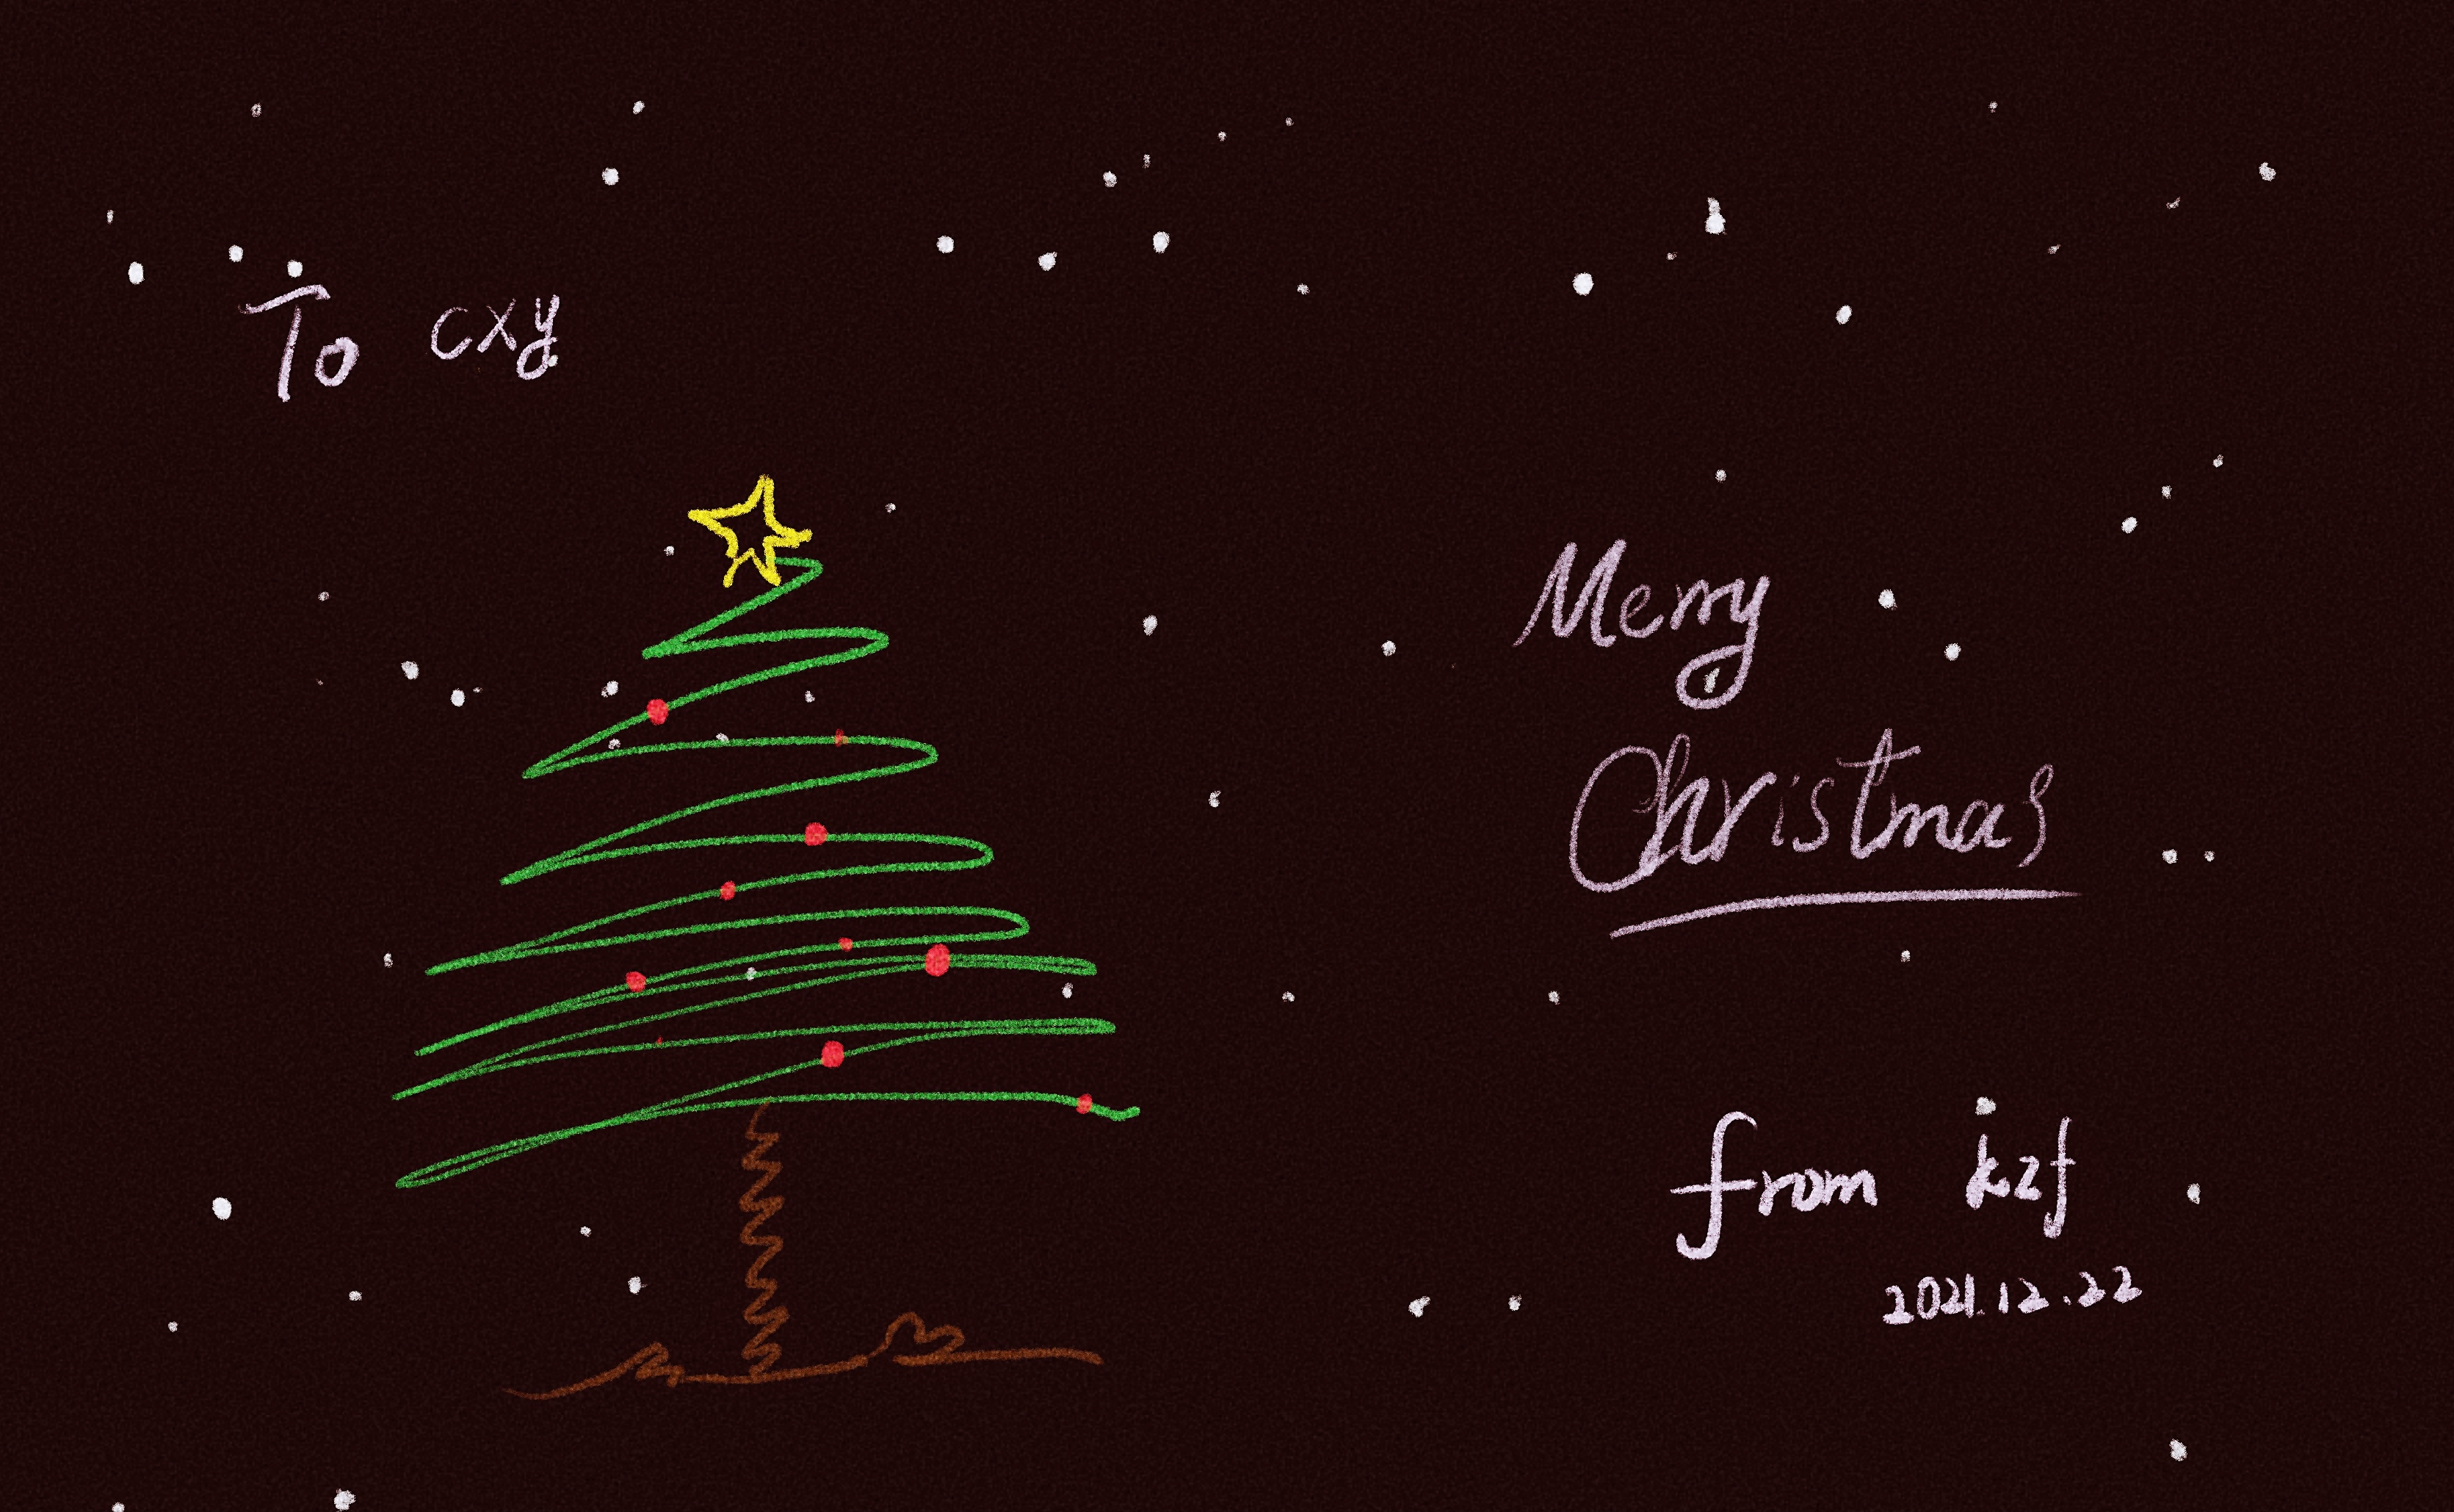 To cxy
Merry
Christmas
from kzf
2021.12.22